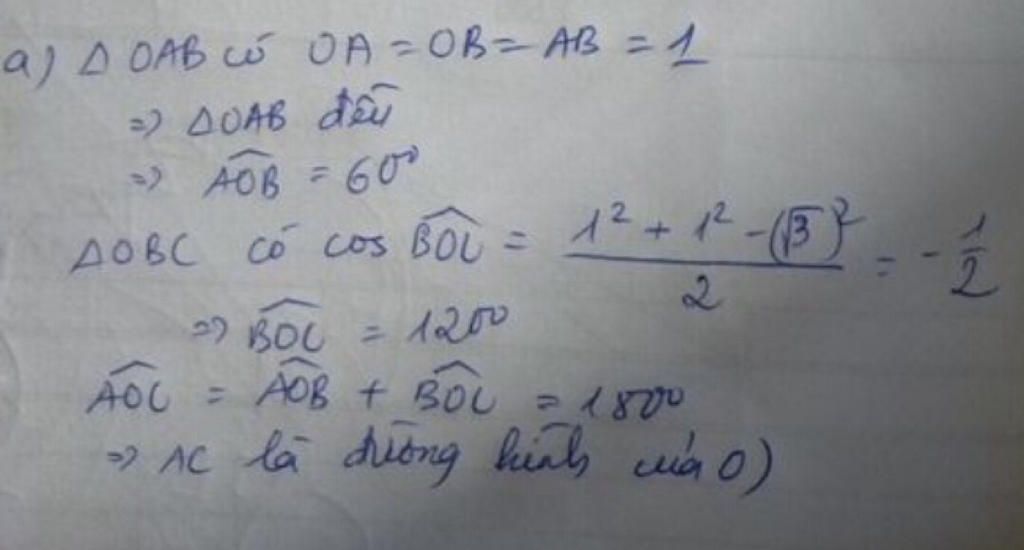 a) △OAB có OA = OB = AB = 1
=> △OAB đều
=> \widehat{AOB} = 60⁰
△OBC có cos \widehat{BOC} = \frac{1² + 1² - (√3)²}{2} = -\frac{1}{2}
=> \widehat{BOC} = 120⁰
\widehat{AOC} = \widehat{AOB} + \widehat{BOC} = 180⁰
=> AC là đường kính của O)